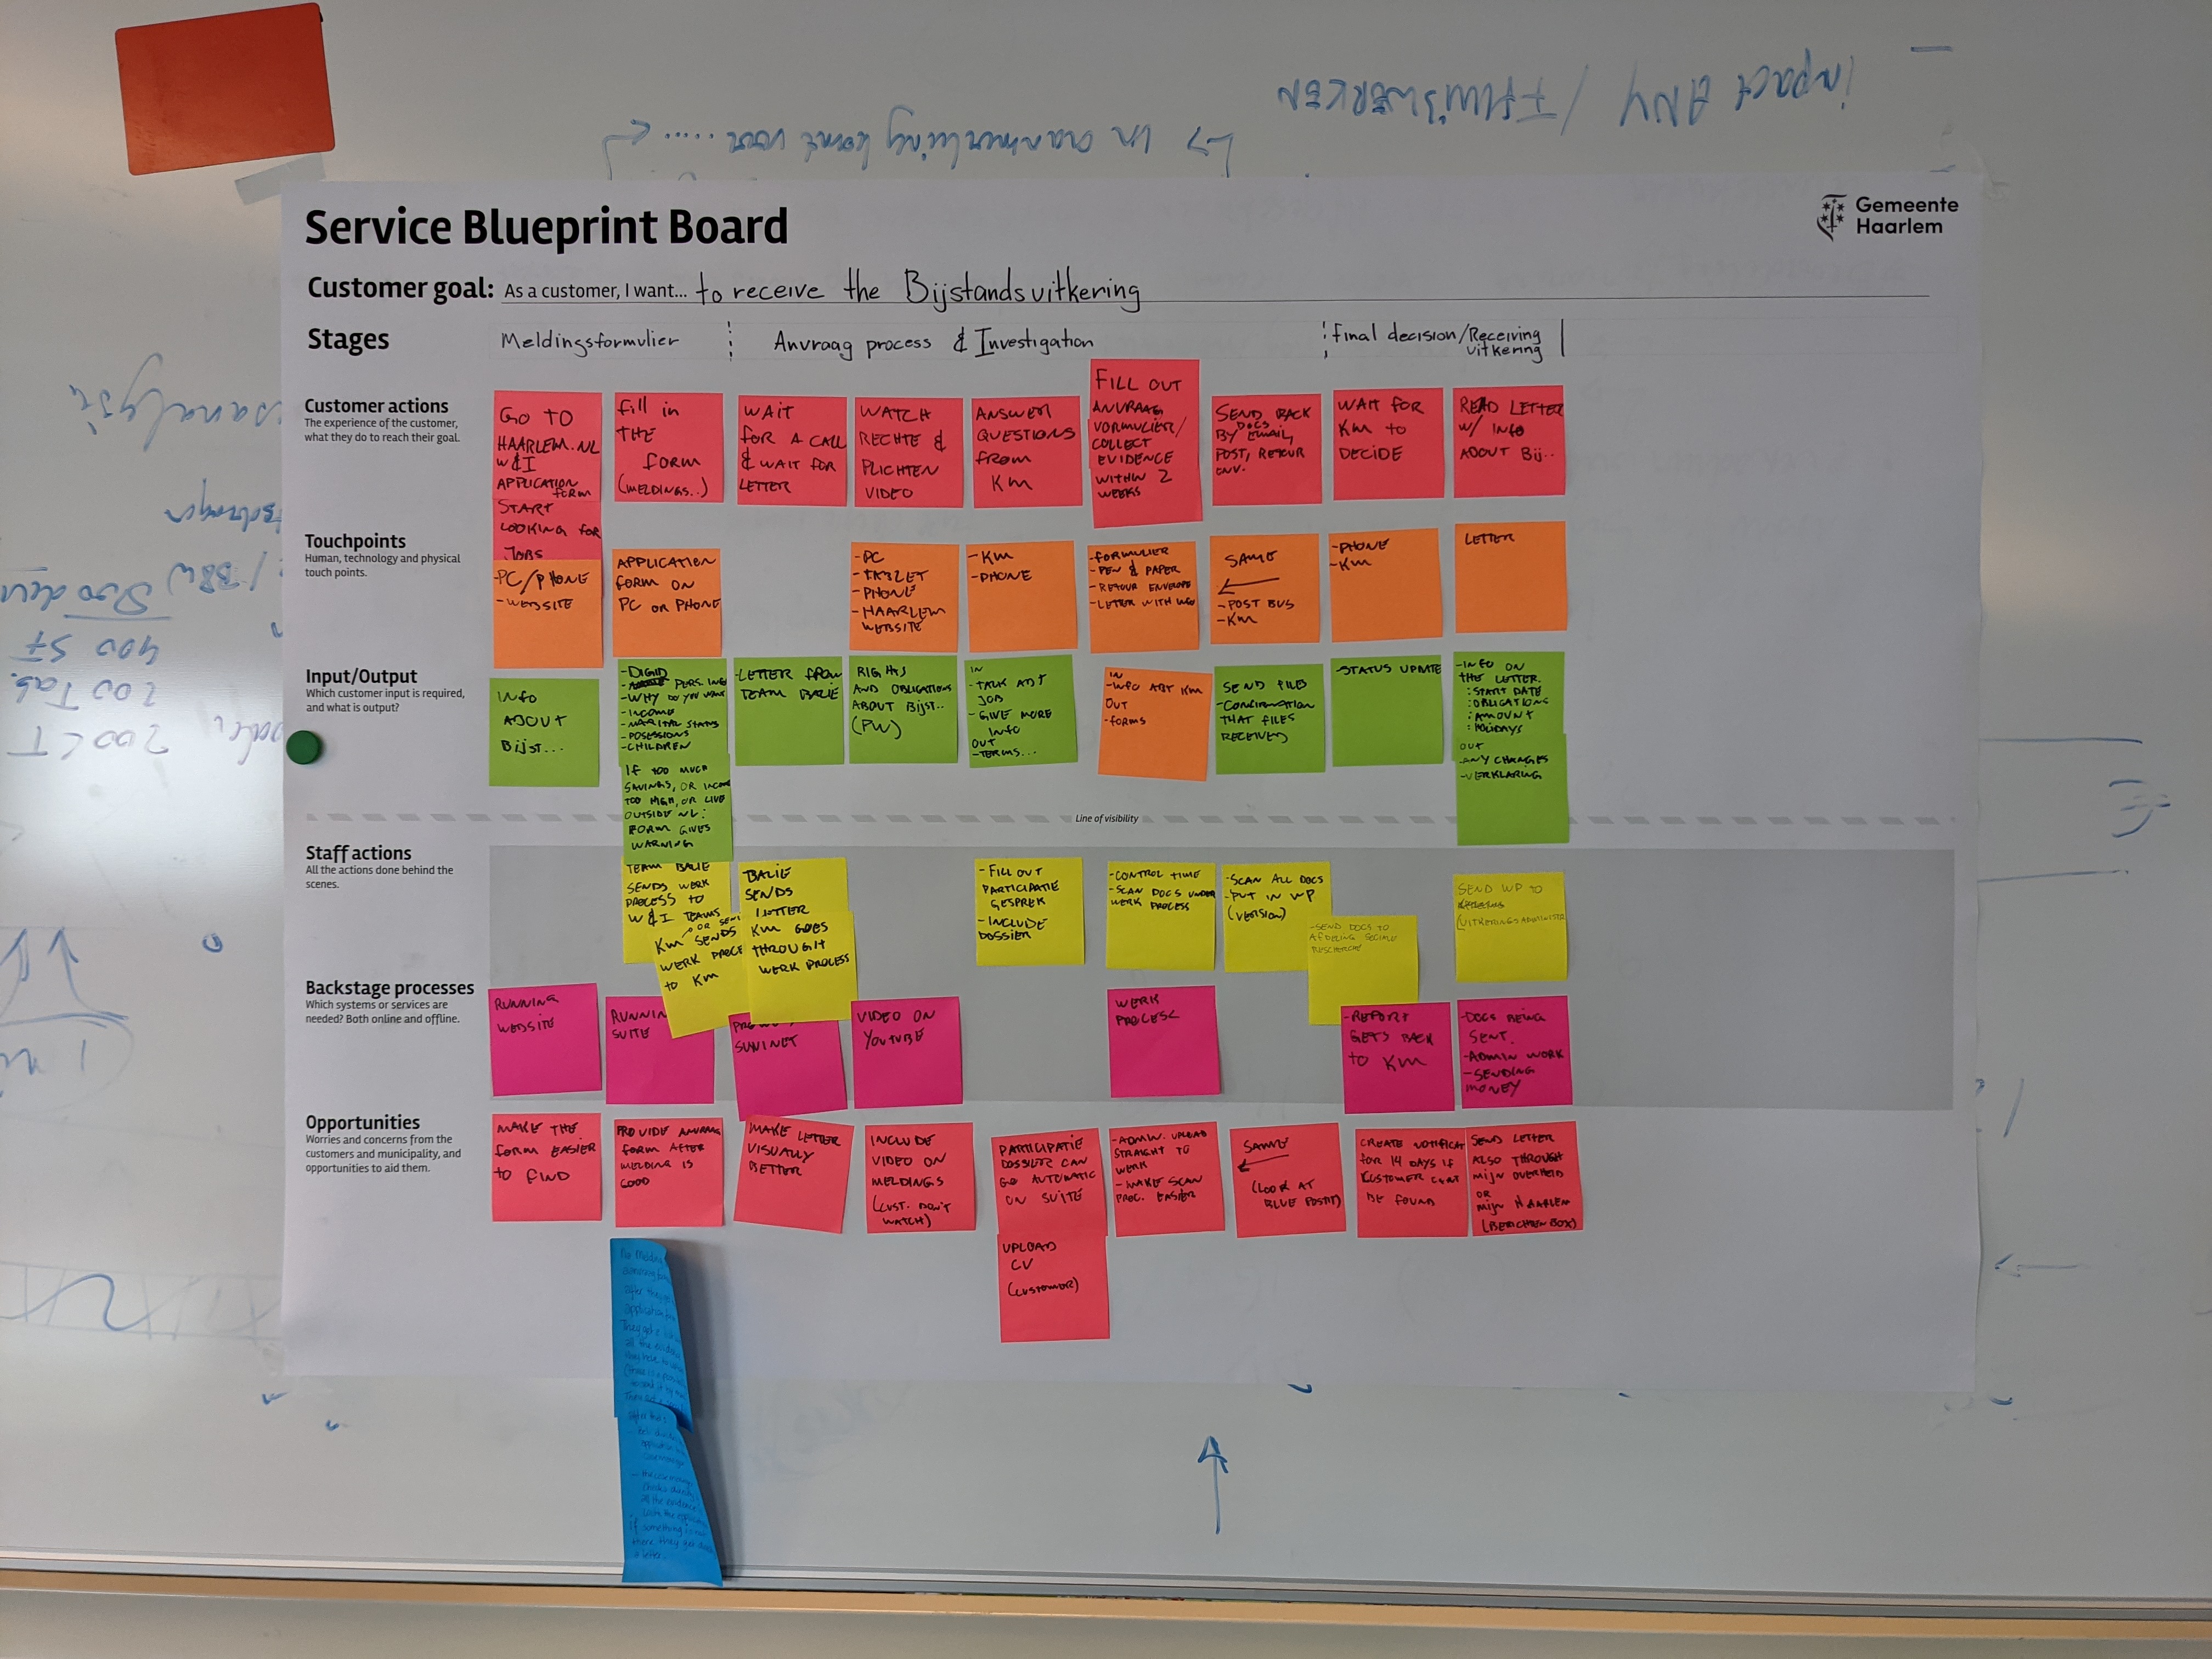 impact ANW / THUISWERKEN
Service Blueprint Board
Gemeente
Haarlem
Customer goal: As a customer, I want... to receive the Bijstandsuitkering
Stages
Meldingsformulier
Anvraag process & Investigation
final decision/Receiving
uitkering
Customer actions
The experience of the customer,
what they do to reach their goal.
GO TO
HAARLEM.NL
W&I
APPLICATION
FORM
START
LOOKING FOR
JOBS
fill in
THE
FORM
(MELDINGS..)
WAIT
FOR A CALL
& WAIT FOR
LETTER
WATCH
RECHTE &
PLICHTEN
VIDEO
ANSWER
QUESTIONS
FROM
KM
FILL OUT
ANVRAAG
VORMULIER/
COLLECT
EVIDENCE
WITHIN 2
WEEKS
SEND BACK
DOCS
BY EMAIL,
POST, RETOUR
ENV.
WAIT FOR
KM TO
DECIDE
READ LETTER
W/ INFO
ABOUT Bij..
Touchpoints
Human, technology and physical
touch points.
-PC/PHONE
-WEBSITE
APPLICATION
FORM ON
PC OR PHONE
-PC
-TABLET
-PHONE
-HAARLEM
WEBSITE
-KM
-PHONE
-FORMULIER
-PEN & PAPER
-RETOUR ENVELOPE
-LETTER WITH INFO
SAME
-POST BUS
-KM
-PHONE
-KM
LETTER
Input/Output
Which customer input is required,
and what is output?
INFO
ABOUT
Bijst...
-DIGID
PERS. INFO
-WHY DO YOU WANT
-INCOME
-MARITAL STATUS
-POSESSIONS
-CHILDREN
IF TOO MUCH
SAVINGS, OR INCOME
TOO HIGH, OR LIVE
OUTSIDE NL:
FORM GIVES
WARNING
-LETTER FROM
TEAM BALIE
RIGHTS
AND OBLIGATIONS
ABOUT Bijst..
(PW)
IN
-TALK ABT
JOB
-GIVE MORE
INFO
OUT
-TERMS...
IN
-INFO ABT KM
OUT
-FORMS
SEND FILES
-CONFIRMATION
THAT FILES
RECEIVED
-STATUS UPDATE
-INFO ON
THE LETTER.
:START DATE
:OBLIGATIONS
:AMOUNT
:HOLIDAYS
OUT
-ANY CHANGES
-VERKLARING
Line of visibility
Staff actions
All the actions done behind the
scenes.
TEAM BALIE
SENDS WERK
PROCESS TO
W&I TEAMS
OR
KM SENDS
WERK PROCE
TO KM
BALIE
SENDS
LETTER
KM GOES
THROUGH
WERK PROCESS
-FILL OUT
PARTICIPATIE
GESPREK
-INCLUDE
DOSSIER
-CONTROL TIME
-SCAN DOCS UNDER
WERK PROCESS
-SCAN ALL DOCS
-PUT IN WP
(VERSION)
-SEND DOCS TO
AFDELING SOCIALE
RESCHERCHE
SEND WP TO
(UITKERINGSADMINISTR
Backstage processes
Which systems or services are
needed? Both online and offline.
RUNNING
WEBSITE
RUNNIN
SUITE
SUWINET
VIDEO ON
YOUTUBE
WERK
PROCESS
-REPORT
GETS BACK
TO KM
-DOCS BEING
SENT.
-ADMIN WORK
-SENDING
MONEY
Opportunities
Worries and concerns from the
customers and municipality, and
opportunities to aid them.
MAKE THE
FORM EASIER
TO FIND
PROVIDE ANVRAAG
FORM AFTER
MELDING IS
GOOD
MAKE LETTER
VISUALLY
BETTER
INCLUDE
VIDEO ON
MELDINGS
(CUST. DON'T
WATCH)
PARTICIPATIE
DOSSIER CAN
GO AUTOMATIC
ON SUITE
UPLOAD
CV
(CUSTOMER)
-ADMIN. UPLOAD
STRAIGHT TO
WERK
-MAKE SCAN
PROC. EASIER
SAME
(LOOK AT
BLUE POSTIT)
CREATE NOTIFICAT
FOR 14 DAYS IF
CUSTOMER CAN'T
BE FOUND
SEND LETTER
ALSO THROUGH
MIJN OVERHEID
OR
MIJN HAARLEM
(BERICHTEN BOX)